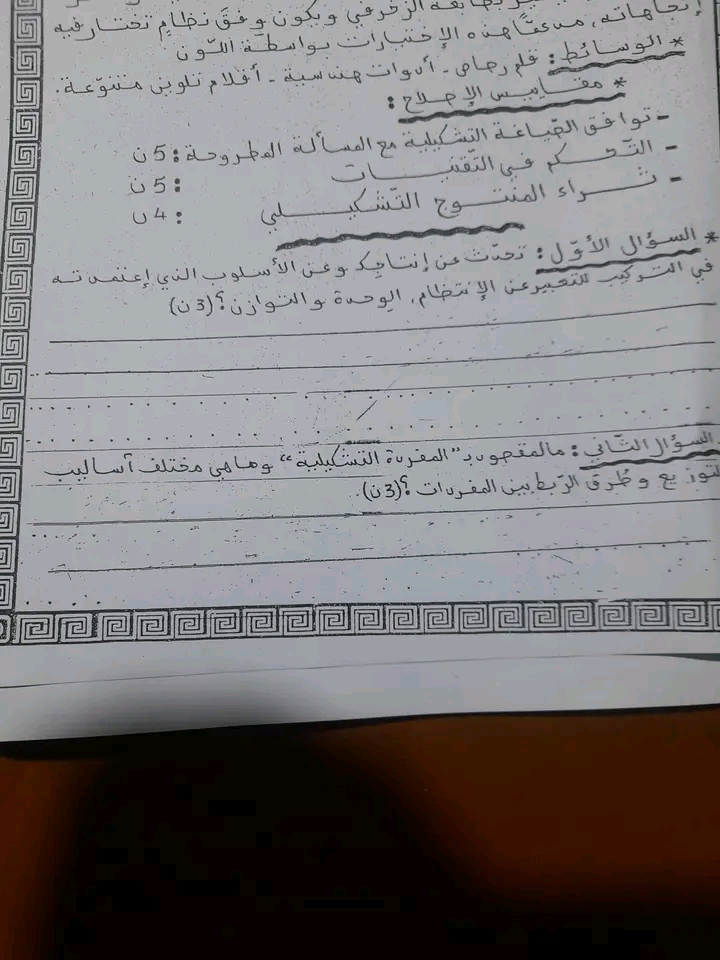 إتجاهاته، مدعّمًا هذه الإختيارات بواسطة اللّون
الزخرفي ويكون وفق نظام تختار فيه
* الوسائط: قلم رصاص - أدوات هندسية - أقلام تلوين متنوّعة.
* مقاييس الإصلاح:
- توافق الصّياغة التشكيلية مع المسألة المطروحة: 5 ن
- التّحكم في التّقنيات : 5 ن
- ثراء المنتوج التّشكيلي : 4 ن
* السؤال الأوّل: تحدّث عن إنتاجك وعن الأسلوب الذي إعتمدته
في التركيب للتعبير عن الإنتظام، الوحدة والتوازن؟ (3 ن)
السؤال الثّاني: مالمقصود بـ "المفردة التشكيلية" وماهي مختلف أساليب
التوزيع وطُرق الرّبط بين المفردات؟ (3 ن).